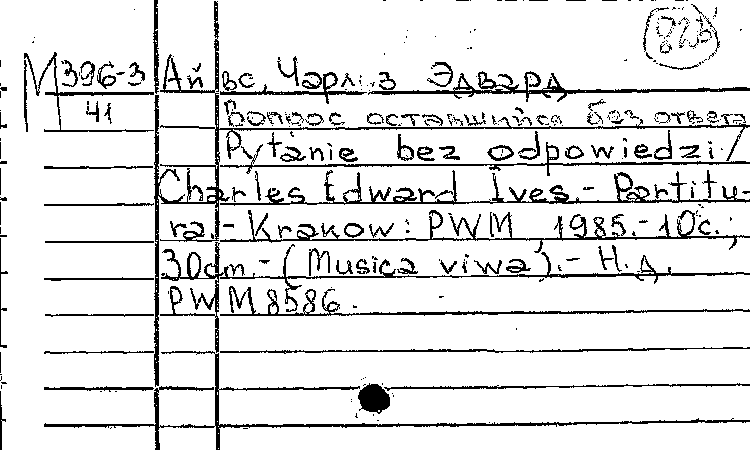 82з
М396-3 Айвс, Чарлиз Эдвард
41 Вопрос оставшийся без ответа
Pytanie bez odpowiedzi /
Charles Edward Ives.- Partitu-
ra.- Krakow: PWM, 1985.-10с.;
30cm.- (Musica viwa).- Н.д.
PWM 8586.